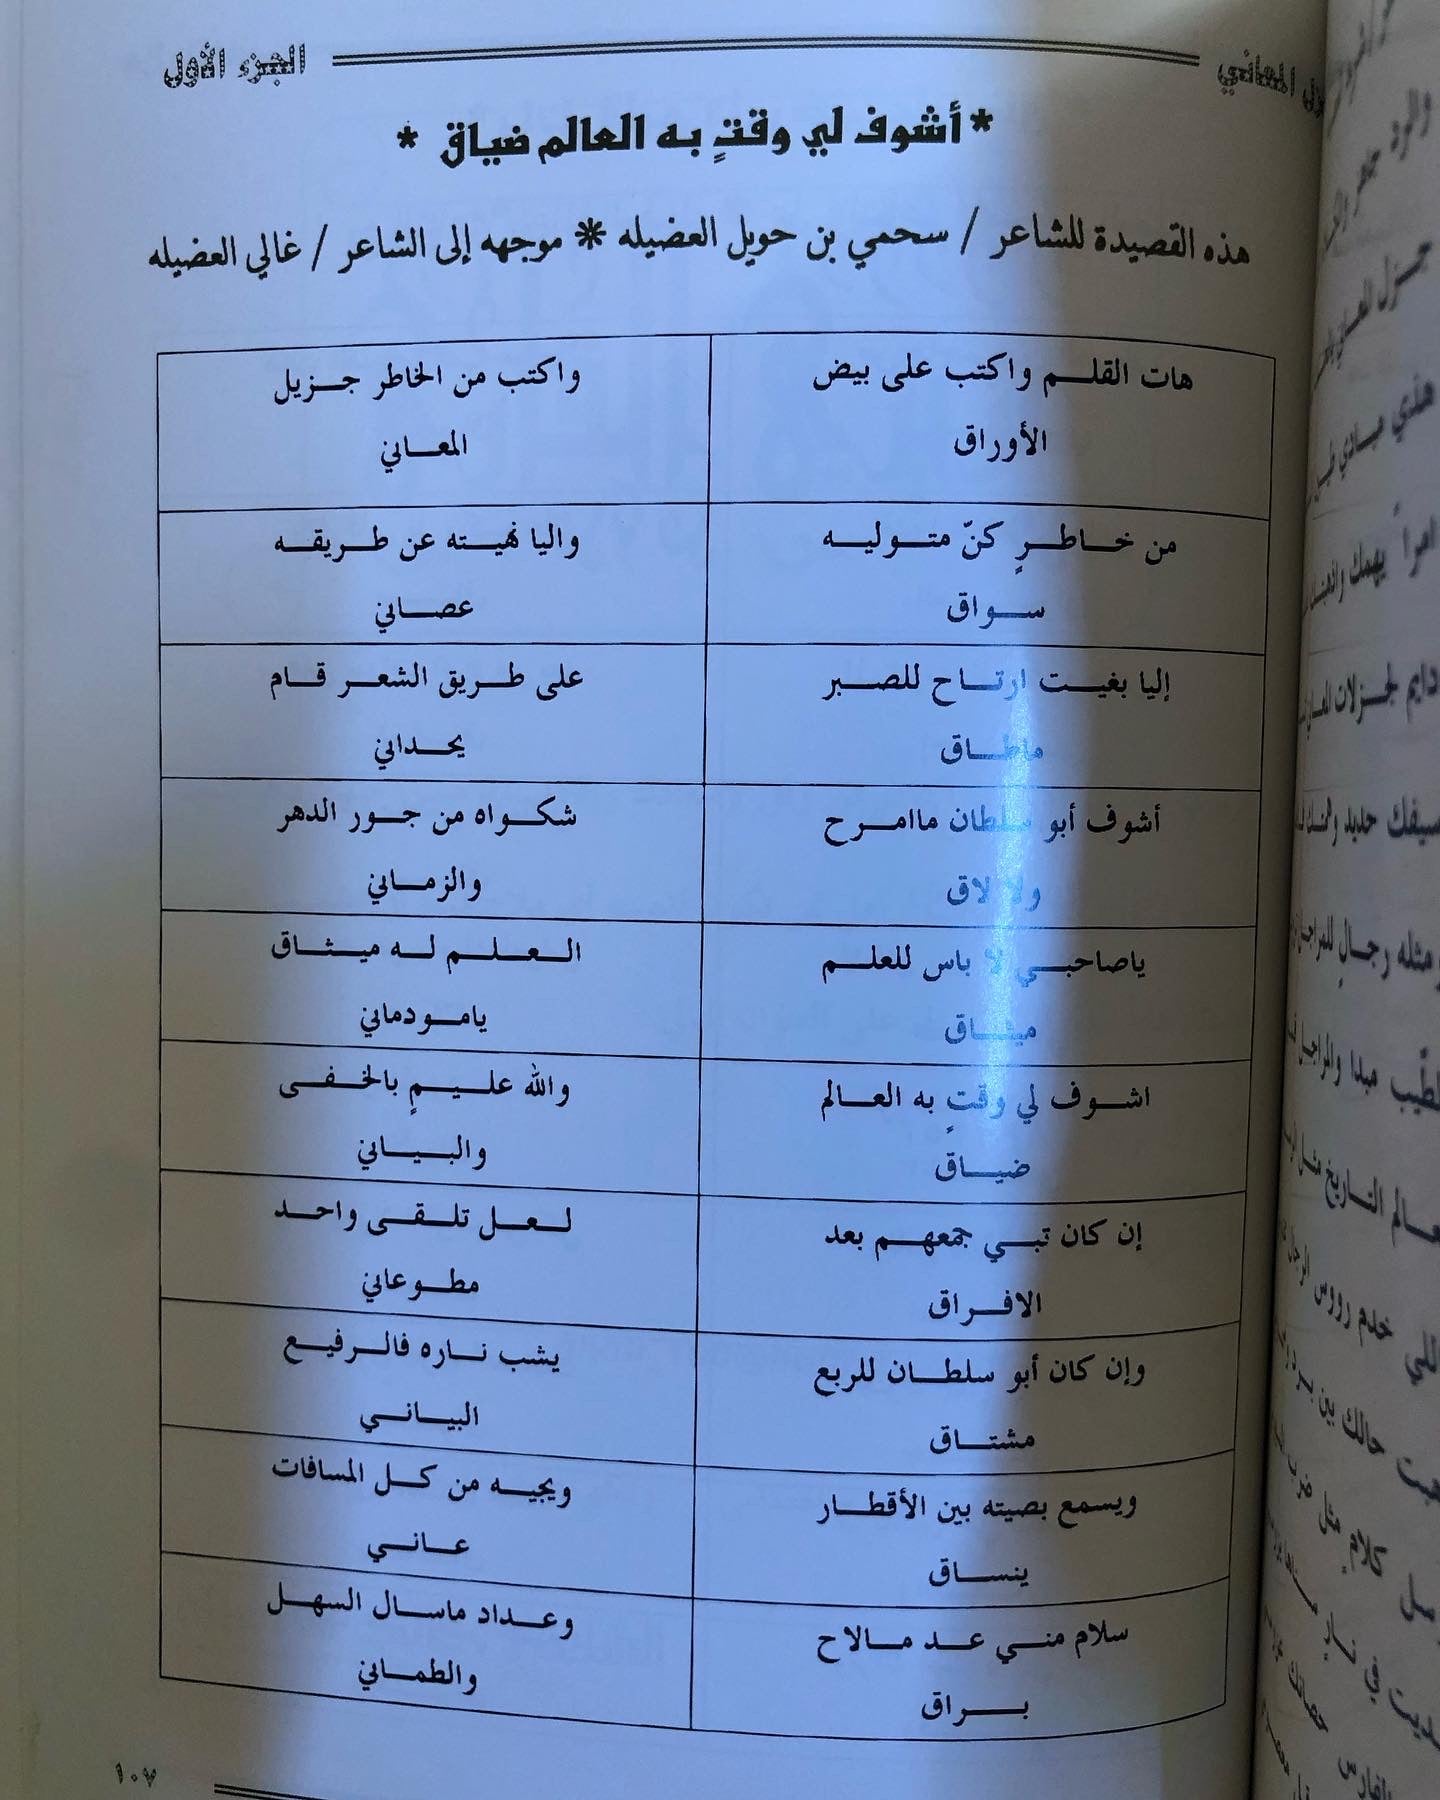 المعاني
الجزء الأول
* أشوف لي وقتٍ به العالم ضياق *
هذه القصيدة للشاعر / سحمي بن حويل العضيله * موجهه إلى الشاعر / غالي العضيله
هات القلم واكتب على بيض
الأوراق
واكتب من الخاطر جزيل
المعاني
من خاطرٍ كنّ متوليه
سواق
واليا نهيته عن طريقه
عصاني
إليا بغيت ارتاح للصبر
ماطاق
على طريق الشعر قام
يحداني
أشوف أبو سلطان ماامرح
ولا لاق
شكواه من جور الدهر
والزماني
ياصاحبي لا باس للعلم
ميثاق
العلم له ميثاق
يامودماني
اشوف لي وقتٍ به العالم
ضياق
والله عليمٍ بالخفى
والبياني
إن كان تبي جمعهم بعد
الافراق
لعل تلقى واحد
مطوعاني
وإن كان أبو سلطان للربع
مشتاق
يشب ناره فالرفيع
البياني
ويسمع بصيته بين الأقطار
ينساق
ويجيه من كل المسافات
عاني
سلام مني عد مالاح
براق
وعداد ماسال السهل
والطماني
١٠٧